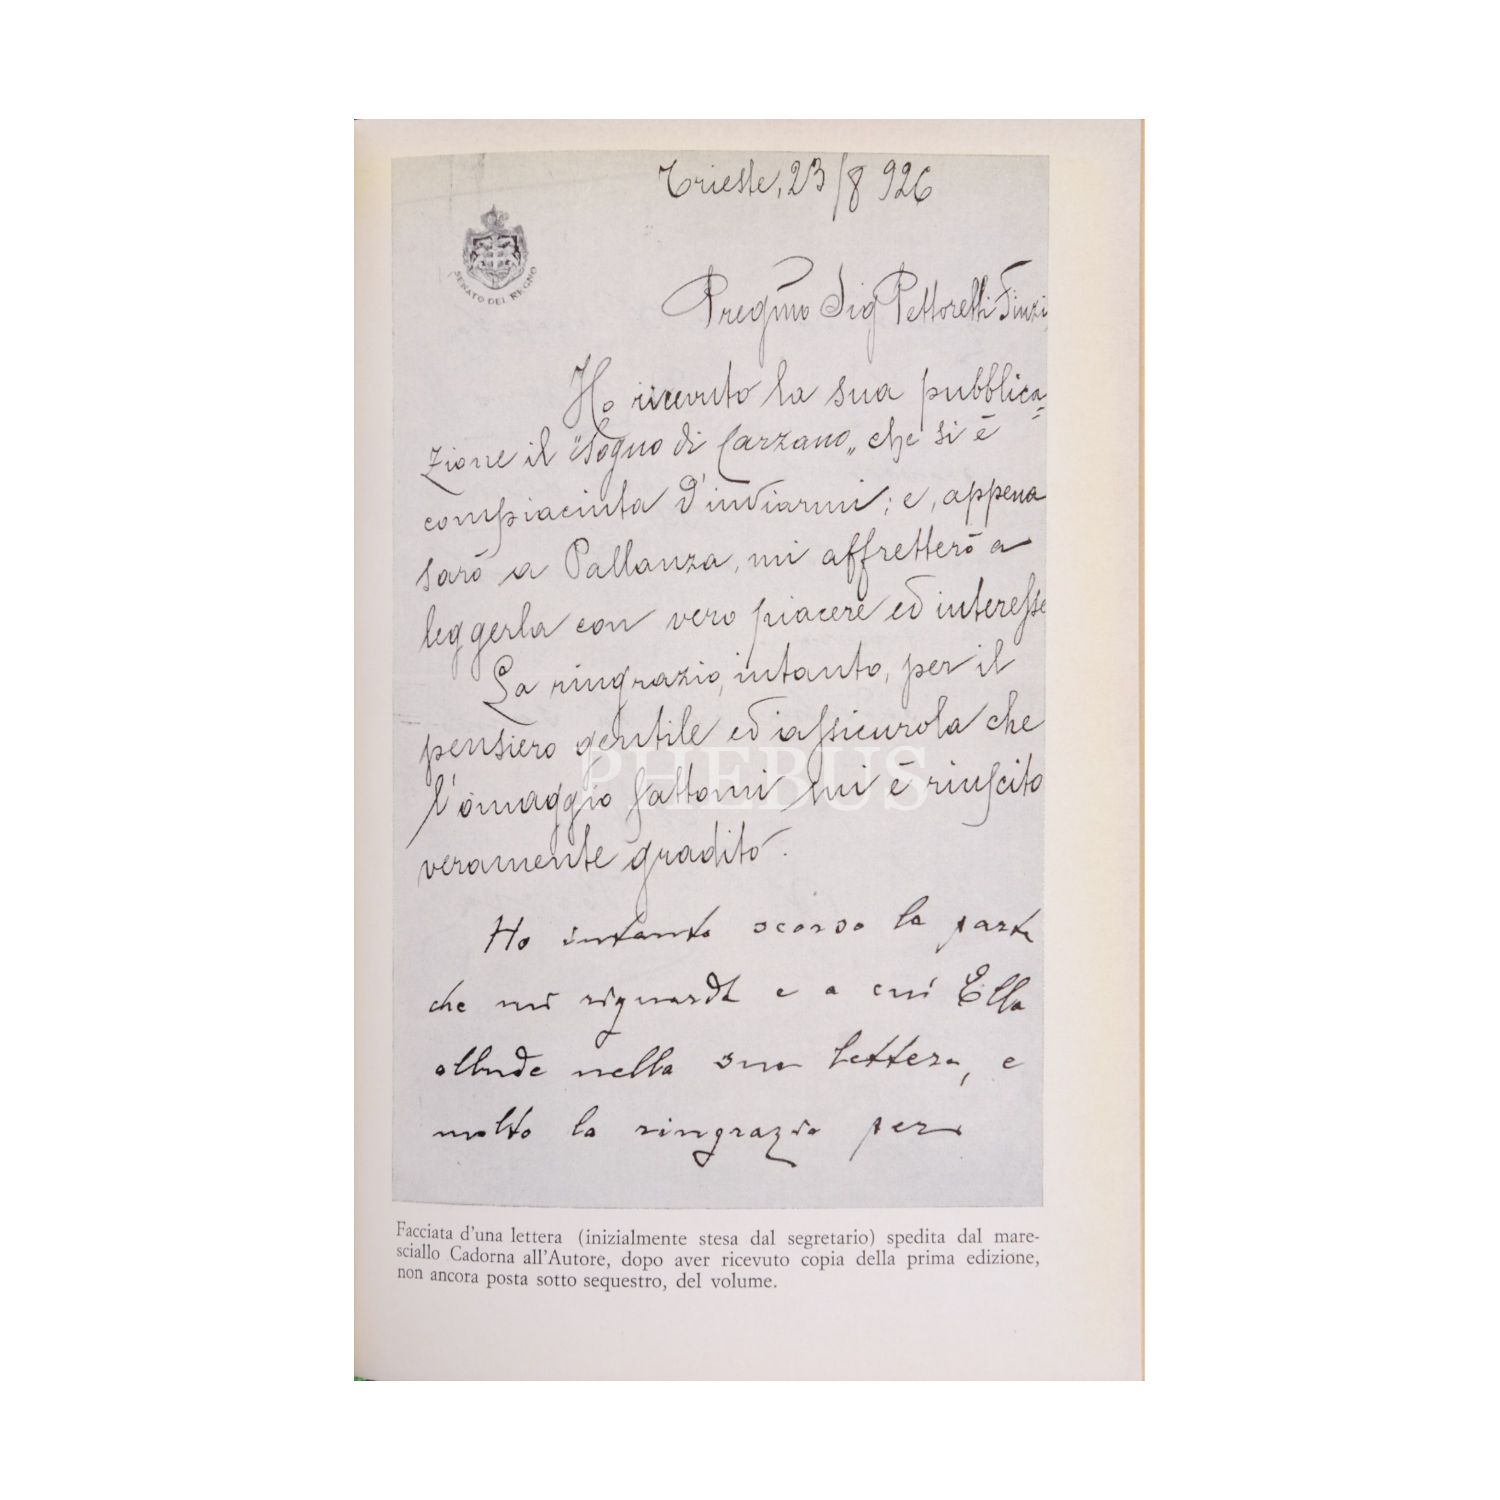 Trieste, 23/8 926
SENATO DEL REGNO
Pregmo Sig Pettorelli Finzi,
Ho ricevuto la sua pubblica=
zione il "Sogno di Carzano„ che si è
compiaciuta d'inviarmi; e, appena
sarò a Pallanza, mi affretterò a
leggerla con vero piacere ed interesse
La ringrazio, intanto, per il
pensiero gentile ed assicurola che
l'omaggio fattomi mi è riuscito
veramente gradito.
PHEBUS
Ho intanto scorso la parte
che mi riguarda e a cui Ella
allude nella sua lettera, e
molto la ringrazio per
Facciata d'una lettera (inizialmente stesa dal segretario) spedita dal mare-
sciallo Cadorna all'Autore, dopo aver ricevuto copia della prima edizione,
non ancora posta sotto sequestro, del volume.